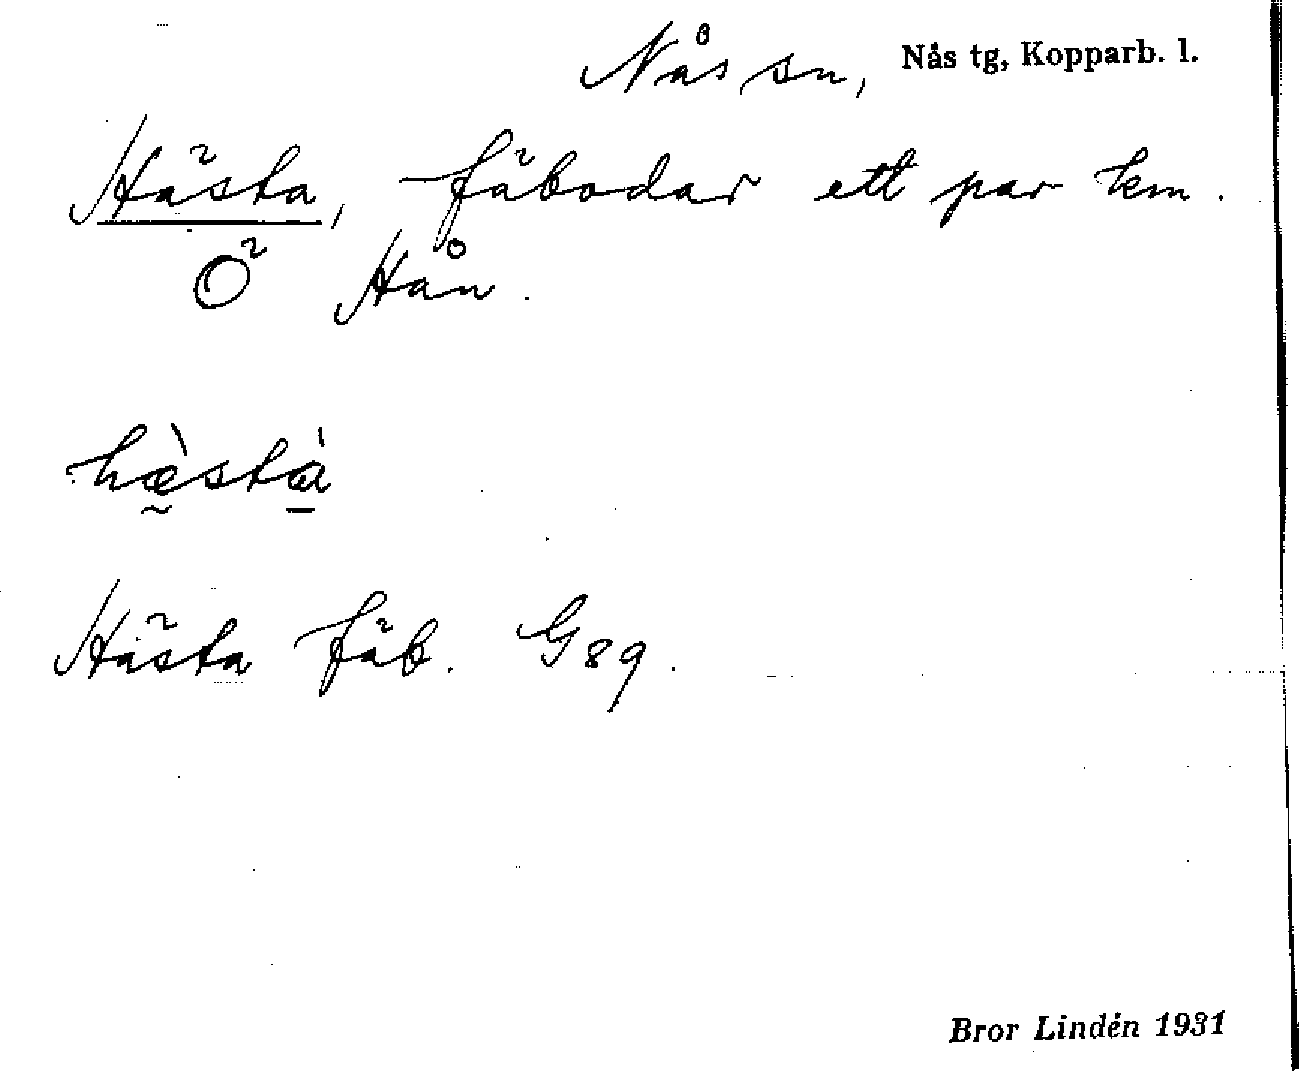 Nås sn, Nås tg, Kopparb. l.
Hästa, fäbodar ett par km.
Ö Hån.
hæ̀stà
Hästa fäb. G89.
Bror Lindén 1931